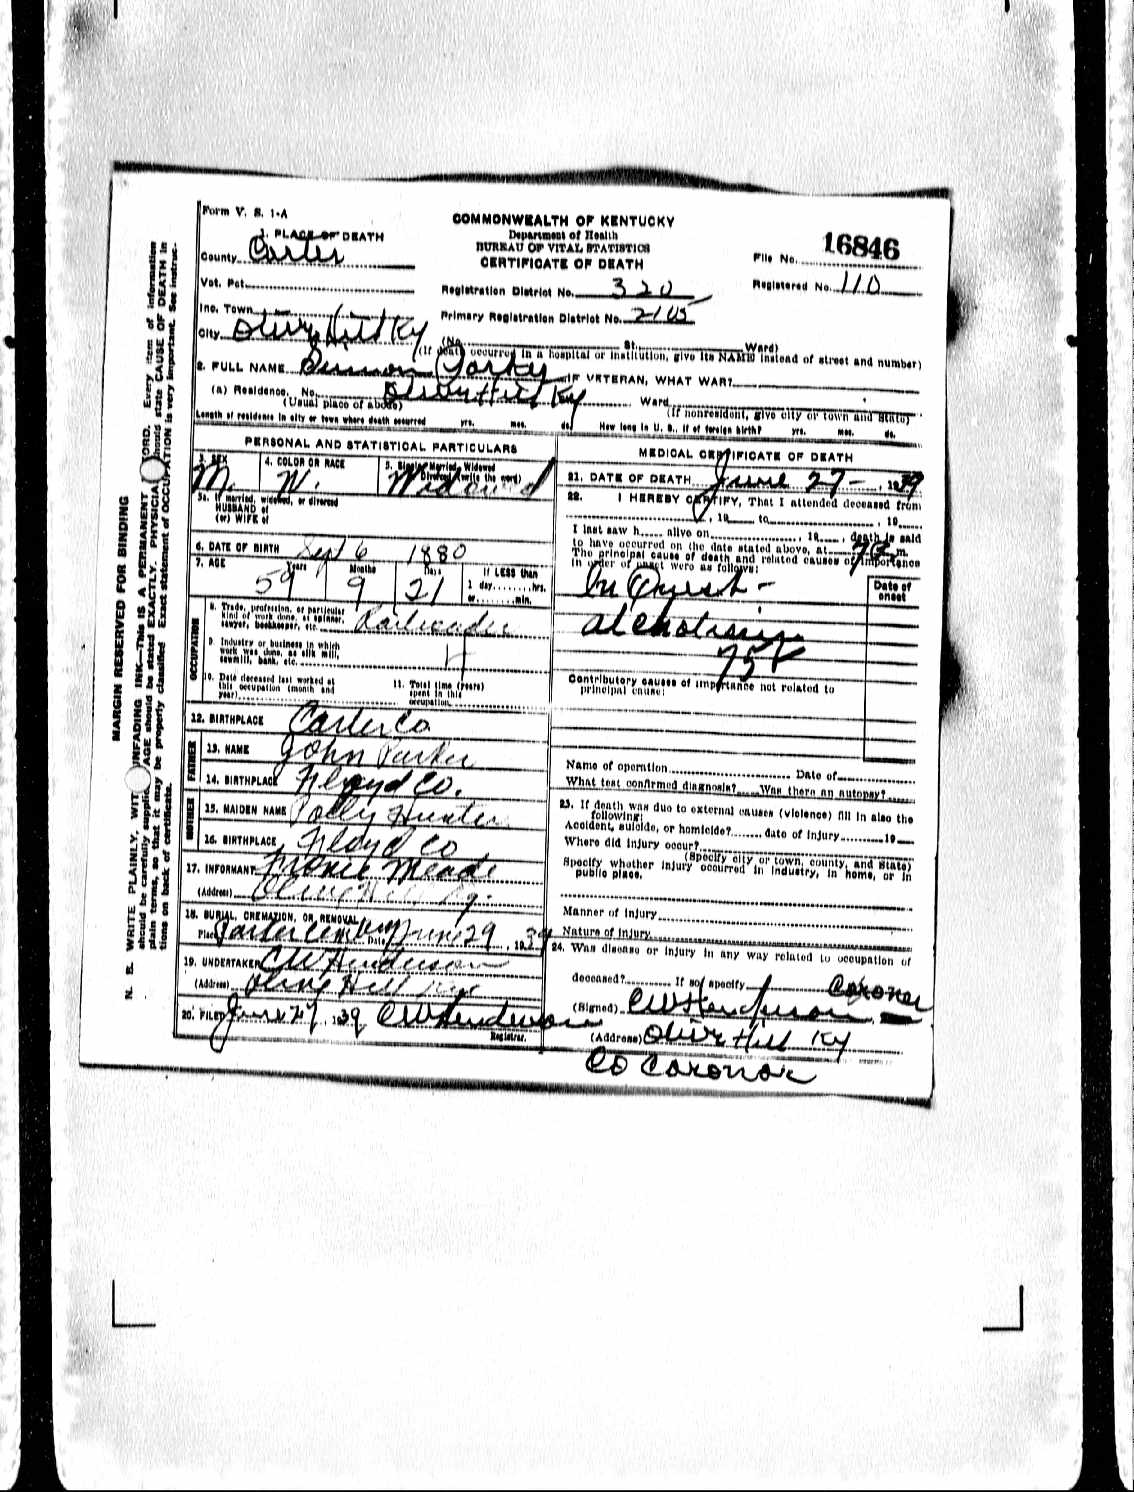 Form V. S. 1-A
COMMONWEALTH OF KENTUCKY
Department of Health
BUREAU OF VITAL STATISTICS
CERTIFICATE OF DEATH
16846
File No.
Registered No. 110
1. PLACE OF DEATH
County Carter
Vot. Pct.
Registration District No. 320
Inc. Town
Primary Registration District No. 2105
City Olive Hill Ky
(No. St. Ward)
(If death occurred in a hospital or institution, give its NAME instead of street and number)
2. FULL NAME IF VETERAN, WHAT WAR?
(a) Residence. No. Olive Hill Ky Ward
(Usual place of abode) (If nonresident, give city or town and State)
Length of residence in city or town where death occurred yrs. mos. ds. How long in U. S. if of foreign birth? yrs. mos. ds.
PERSONAL AND STATISTICAL PARTICULARS
3. SEX
M.
4. COLOR OR RACE
W.
5. Single, Married, Widowed
Divorced (write the word)
Widowed
5a. If married, widowed, or divorced
HUSBAND of
(or) WIFE of
6. DATE OF BIRTH Sept 6 1880
7. AGE Years Months Days If LESS than
59 9 21 1 day, hrs.
or min.
OCCUPATION
8. Trade, profession, or particular
kind of work done, as spinner,
sawyer, bookkeeper, etc. Railroader
9. Industry or business in which
work was done, as silk mill,
sawmill, bank, etc.
10. Date deceased last worked at
this occupation (month and
year)
11. Total time (years)
spent in this
occupation
12. BIRTHPLACE Carter Co
FATHER
13. NAME John Parker
14. BIRTHPLACE Floyd Co.
MOTHER
15. MAIDEN NAME Polly Hunter
16. BIRTHPLACE Floyd Co
17. INFORMANT Meade
(Address) Olive Hill Ky.
18. BURIAL, CREMATION, OR REMOVAL
Place Date June 29, 1939
19. UNDERTAKER CW Henderson
(Address) Olive Hill Ky
20. FILED June 27, 1939 CW Henderson
Registrar.
MEDICAL CERTIFICATE OF DEATH
21. DATE OF DEATH June 27-, 1939
22. I HEREBY CERTIFY, That I attended deceased from
, 19 to , 19
I last saw h alive on , 19 , death is said
to have occurred on the date stated above, at m.
The principal cause of death and related causes of importance
in order of onset were as follows:
Date of
onset
In Quest-
alcholism
Contributory causes of importance not related to
principal cause:
Name of operation Date of
What test confirmed diagnosis? Was there an autopsy?
23. If death was due to external causes (violence) fill in also the
following:
Accident, suicide, or homicide? date of injury 19
Where did injury occur?
(Specify city or town, county, and State)
Specify whether injury occurred in industry, in home, or in
public place.
Manner of injury
Nature of injury
24. Was disease or injury in any way related to occupation of
deceased? If so, specify
Coroner
(Signed) CW Henderson,
(Address) Olive Hill Ky
Co Coronor
MARGIN RESERVED FOR BINDING